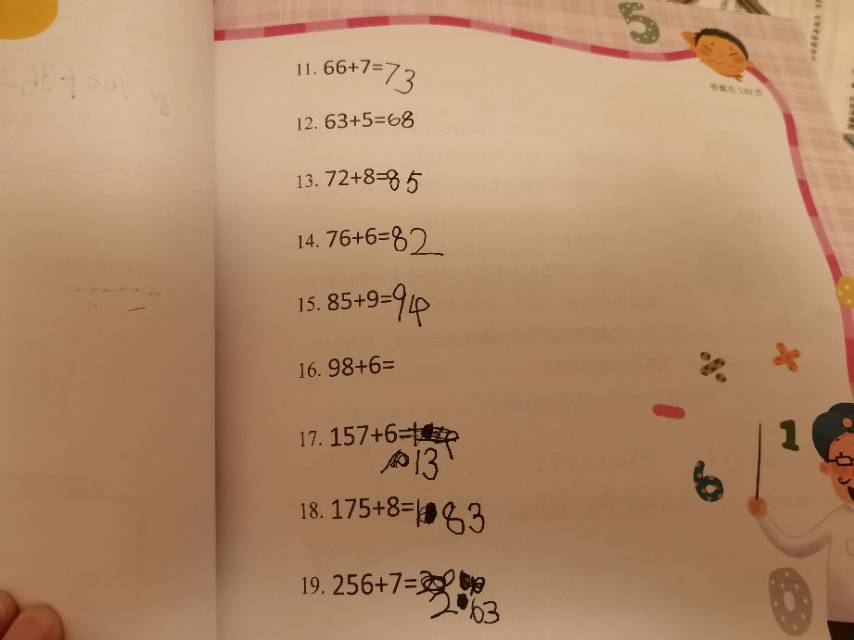 答案在189页
11. 66+7=73
12. 63+5=68
13. 72+8=85
14. 76+6=82
15. 85+9=94
16. 98+6=
17. 157+6=
13
18. 175+8=1 83
19. 256+7=
2 63
5
1
6
0